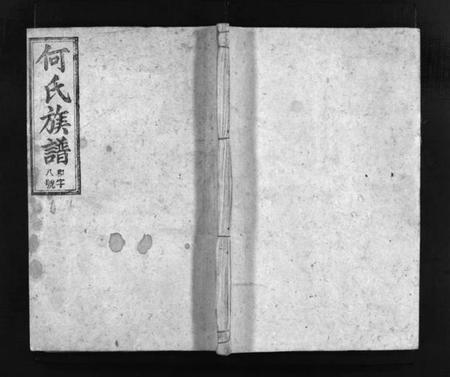 何氏族譜
字
八號